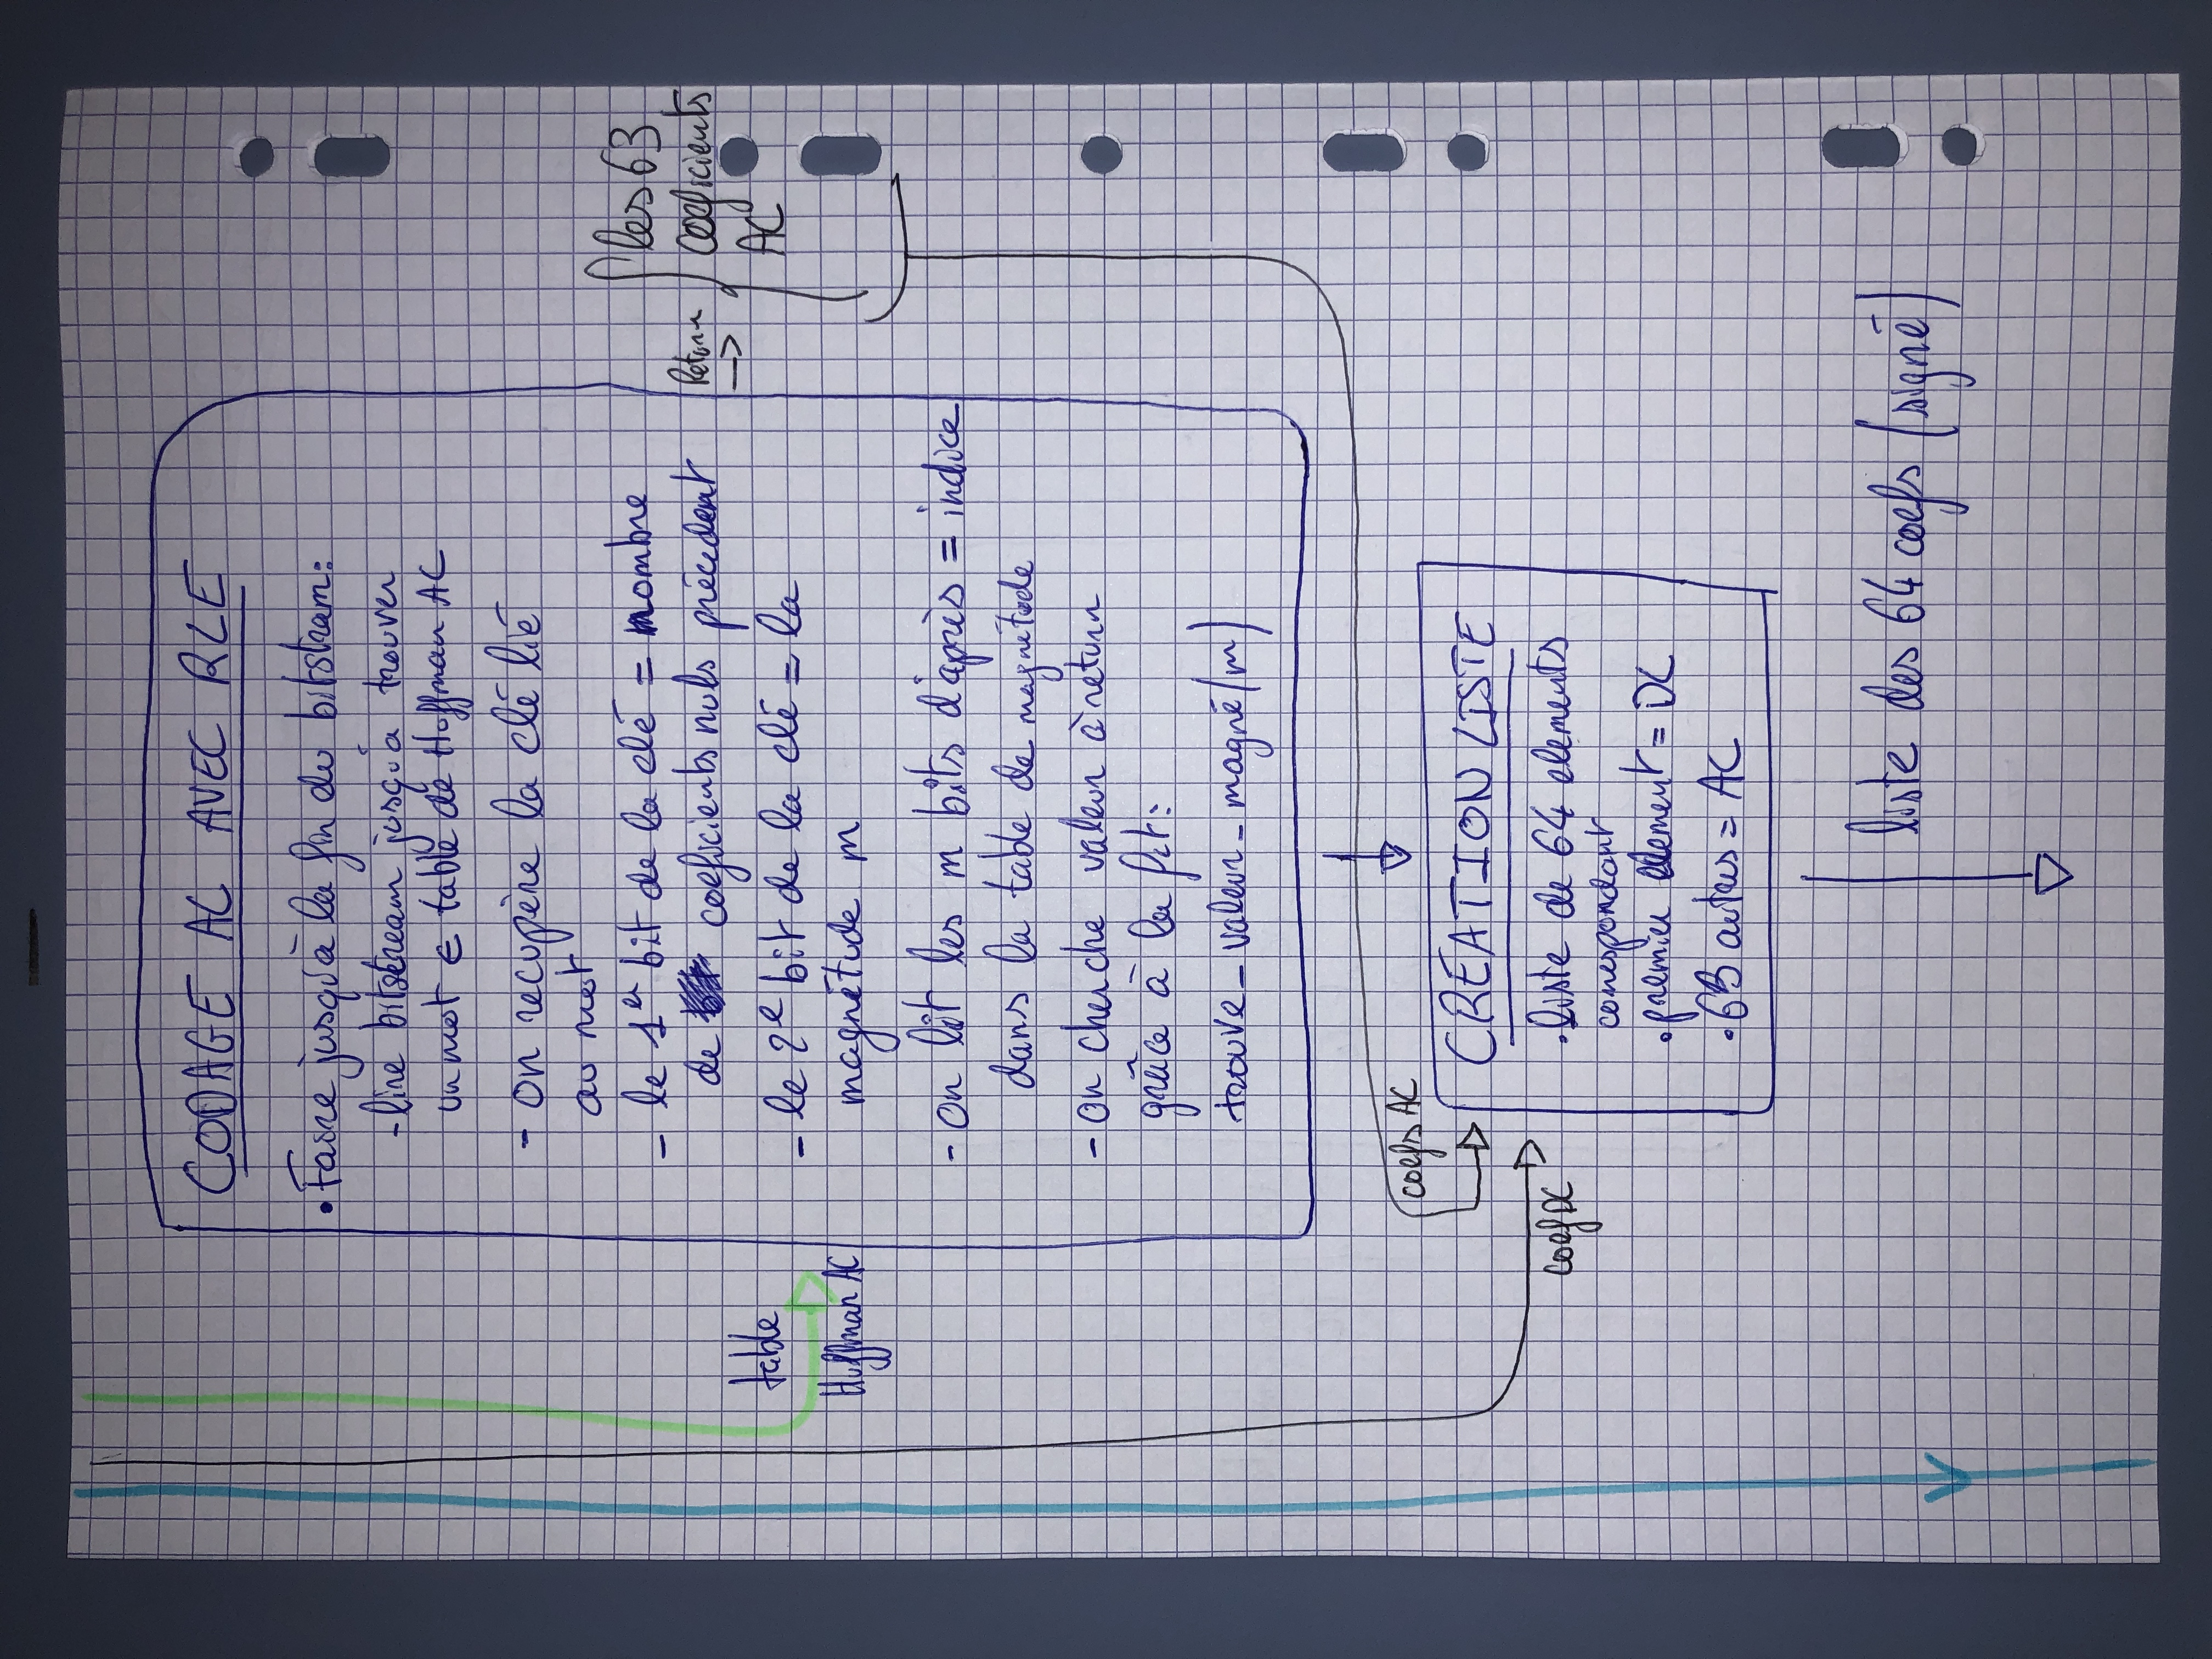 CODAGE AC AVEC RLE
• Faire jusqu'à la fin du bitstram:
- lire bitstream jusqu'à trouver
un mot ∈ table de Huffman AC
- on recupère la clé lié
au mot
- le 1er bit de la clé = nombre
de coeficients nuls précedent
- le 2e bit de la clé = la
magnétude m
- on lit les m bits d'après = indice
dans la table de magnétude
- on cherche valeur à return
grâce à la fct:
trouve_valeur_magné(m)
table
Huffman AC
Return
->
les 63
coeficients
AC
coefs AC
coef DC
CREATION LISTE
• liste de 64 elements
correspondant
• premier element = DC
• 63 autres = AC
liste des 64 coefs (signé)